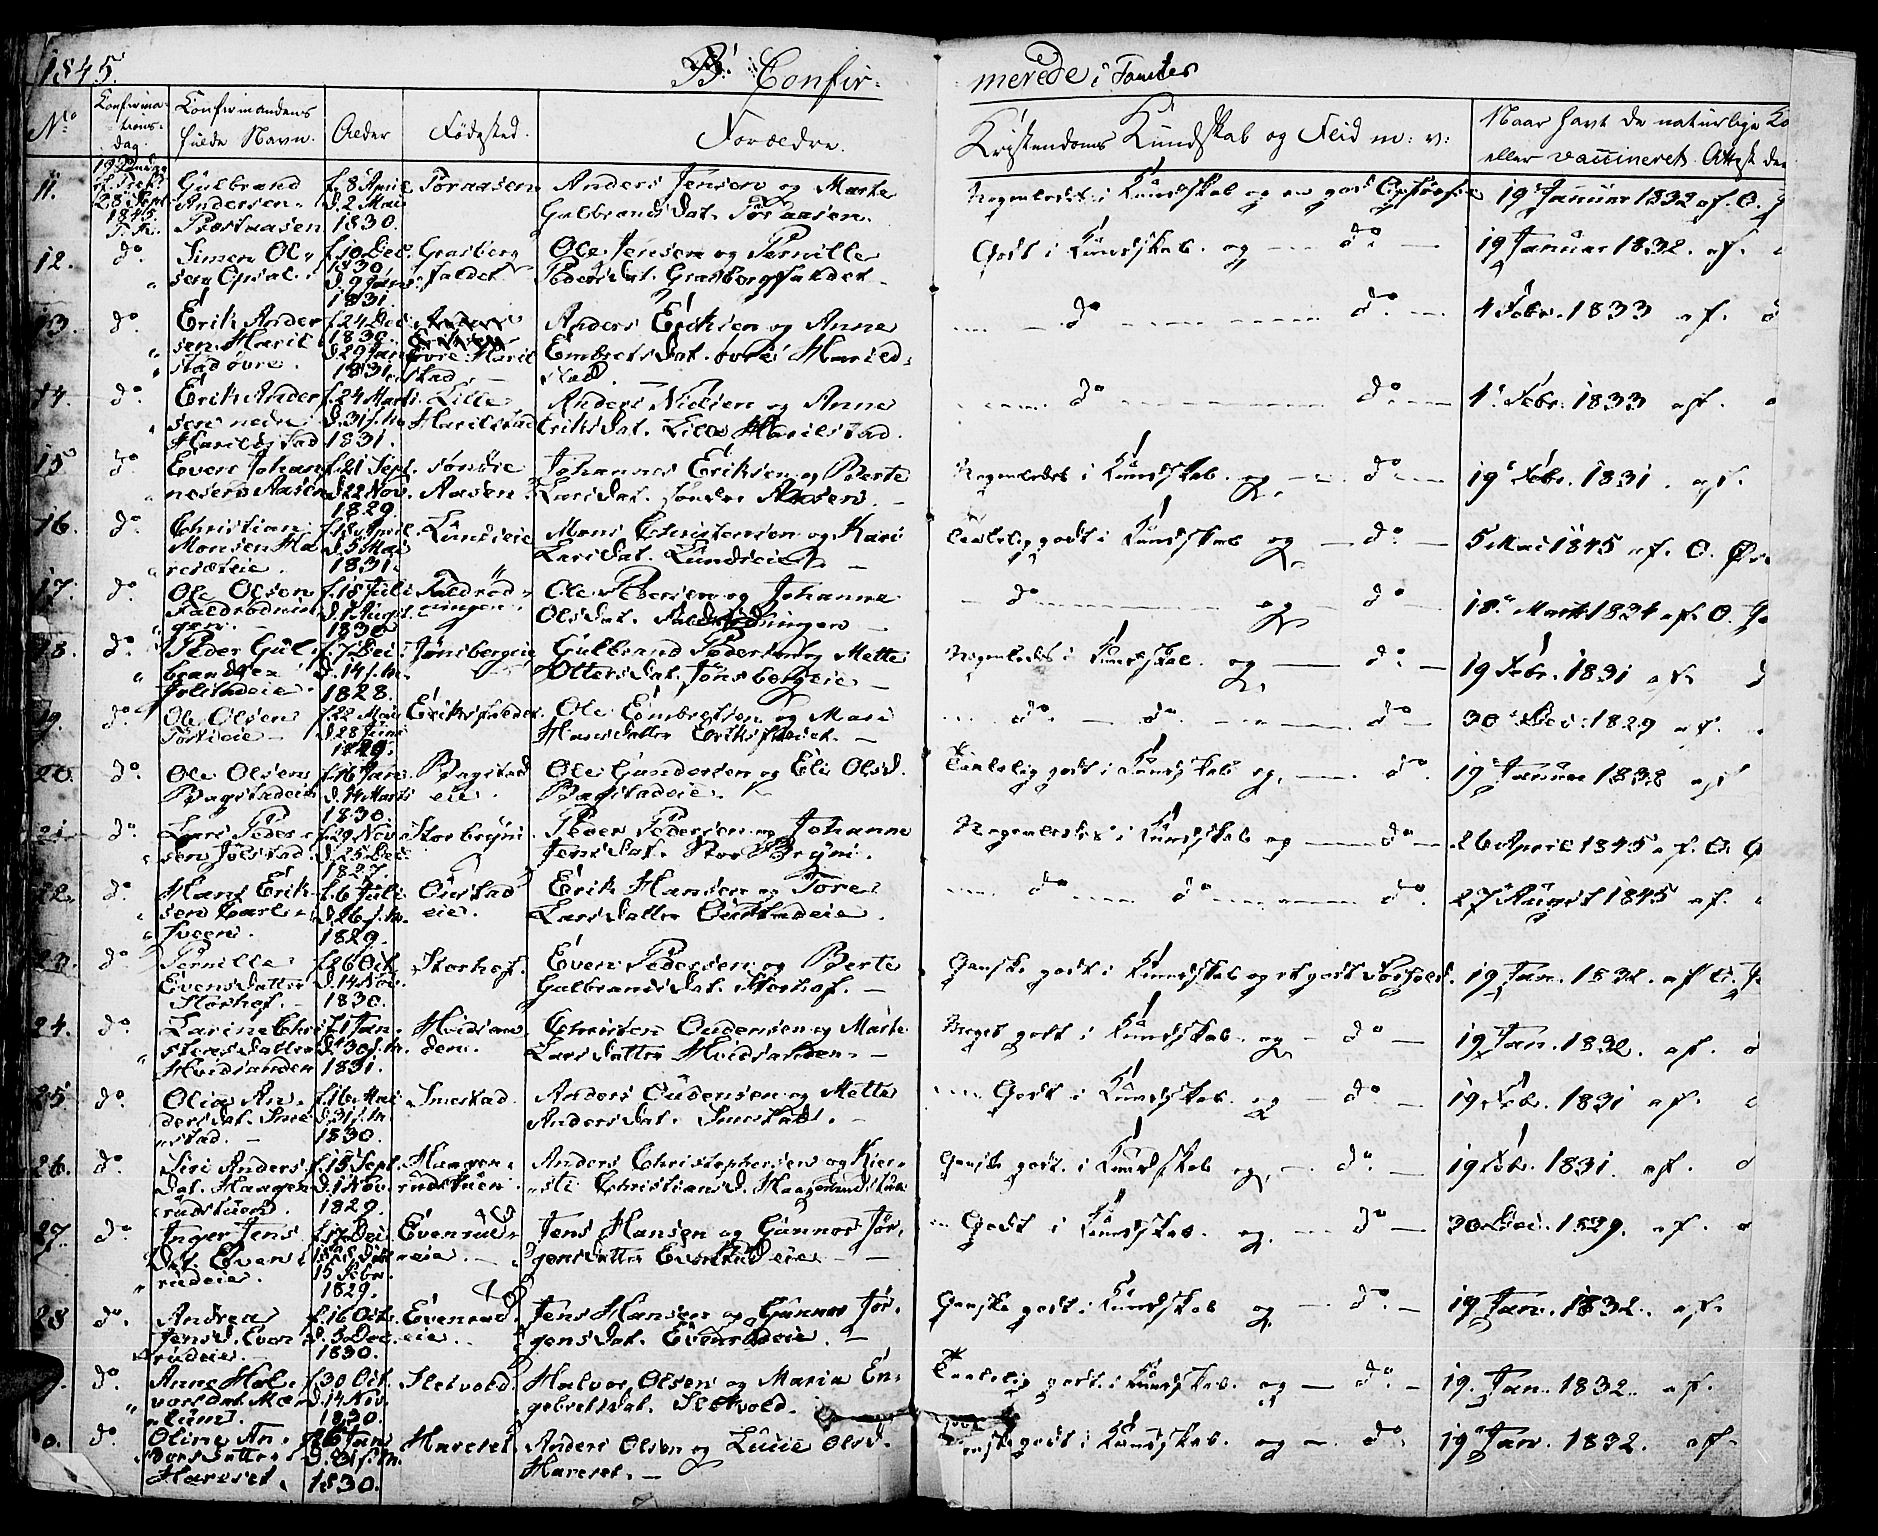 1845.
B. Confir-
merede i
No
Konfirmations-
dag.
Konfirmandens
fulde Navn.
Alder
Fødested.
Forældre.
Kristendoms Kundskab og Flid m: v:
Naar havt de naturlige Ko
eller vaccineret. Attest der
11.
28 Sept
1845.
Gulbrand
Andersen
f. 8 April
d. 2 Mai
1830.
Anders Jensen og Marte
Gulbrands Dat.
Nogenledes i Kundskab og en god
19 Januar 1832 af. O.
12.
do.
Simen Ol-
sen Opsal.
f. 10 Dec.
1830.
d. 9 Jan.
1831.
Grasberg
faldet
Ole Jensen og Pernille
Peders Dat. Grasbergfaldet
Godt i Kundskab. og — do. —
19 Januar 1832. af.
13.
do.
Erik Ander
sen Harild
stad øvre.
f. 24 Dec
1830.
d. 29 Jan
1831.
Øvre Harild
stad
Anders Eriksen og Anne
Embrets Dat. øvre Harild-
stad.
do do.
4 Febr. 1833 af.
14.
do.
Erik Ander
sen nedre
Harildstad
f. 24 Marts
d. 31 s. M.
1831.
Lille
Harildstad
Anders Nielsen og Anne
Eriks Dat. Lille Harildstad.
do do.
4 Febr. 1833 af.
15
do.
Even Johan
nesen Aasen
f. 21 Sept.
d. 22 Nov.
1829.
søndre
Aasen
Johannes Eriksen og Berte
Lars Dat. søndre Aasen.
Nogenledes i Kundskab. og — do.
19 Febr. 1831. af.
16.
do.
Christian
Monsen Ha
f. 18 April
d. 5 Mai
1831.
Lundseie
Mons Christensen og Kari
Lars Dat. Lundseie
Taalelig godt i Kundskab og — do —
5 Mai 1845 af. O.
17.
do.
Ole Olsen
f. 18 Juli
d. 1 Aug.
1830
Ole Pedersen og Johanne
Ols Dat.
do og — do —
18 Marts 1834 af. O.
18.
do.
Peder Gul-
brandsen
f. 7 Dec.
d. 14 s. M.
1828.
Jønsbergeie
Gulbrand Pedersen og Mette
Otters Dat. Jønsbergeie
Nogenledes i Kundskab. og — do. —
19 Febr. 1831 af.
19.
do.
Ole Olsen
f. 22 Mai
d. 28 Juni
1829.
Eriksfaldet.
Ole Embretsen og Mari
Hans Datter Eriksfaldet.
do. — do. do
30 Dec: 1829 af.
20.
do.
Ole Olsen
Bagstadeie
f. 16 Jan.
d. 14 Marts
1830.
Bagstad
eie.
Ole Gundersen og Eli Olsd.
Bagstadeie.
Taalelig godt i Kundskab og, — do.
19 Januar 1832 af
21.
do.
Lars Peder-
sen Julstad.
f. 29 Nov.
d. 25 Dec.
1827.
Storbryni
Peder Pedersen og Johanne
Jens Dat. Stor Bryni.
Nogenledes i Kundskab og — do
26 April 1845 af. O.
22.
do.
Hans Erik-
sen
f. 6 Juli
d. 26 s. M.
1829.
Oustad
eie.
Erik Hansen og Tore
Lars Datter Oustadeie.
do do do.
27 August 1845 af.
23.
do.
Pernille
Evens Datter
Storhof.
f. 26 Oct.
d. 14 Nov.
1830.
Storhof.
Even Pedersen og Berte
Gulbrands Dat. Storhof.
Ganske godt i Kundskab og et godt Forhold.
19 Jan. 1832. af O.
24.
do.
Karine Chri
stens Datter
Hvidsanden
f. 1 Jan.
d. 30 s. M.
1831.
Hvidsan
den.
Christen Oudensen og Marte
Lars Datter Hvidsanden.
Meget godt i Kundskab. og — do —
19 Jan. 1832. af.
25
do.
Olia An-
ders Dat. Sme
stad.
f. 16 Mai
d. 31 s. M.
1830.
Smestad.
Anders Oudensen og Mette
Anders Dat. Smestad.
Godt i Kundskab. og — do. —
19 Feb. 1831 af.
26.
do.
Siri Anders
Dat. Haagen
rudstuen.
f. 15 Sept.
d. 1 Nov.
1829.
Haagen-
rudstuen.
Anders Christophersen og Kier-
sti Christians D. Haagenrudstuen
Ganske godt. i Kundskab og, — do. —
19 Feb. 1831. af.
27.
do.
Inger Jens
Dat. Even
rudeie.
15 Febr.
1829.
Evenrud-
eie.
Jens Hansen og Gunnor Jør-
gens Datter Evenrudeie
Godt i Kundskab. og. do —
30 Dec. 1829. af.
28
do.
Andrea
Jens D. Even
rudeie.
f. 16 Oct.
d. 5 Dec.
1830.
Evenrud-
eie.
Jens Hansen og Gunnor Jør-
gens Dat. Evenrudeie.
Ganske godt i Kundskab og — do. —
19 Jan. 1832. af.
do.
Anne Hal-
vors Dat. Mæ
lum.
f. 30 Oct.
d. 14 Nov.
1830.
Sletvold.
Halvor Olsen og Maria En-
gebrets Dat. Sletvold.
Taalelig godt. i Kundskab. og — do. —
19. Jan. 1832. af.
do.
Oline An-
ders Datter
Hareset.
f. 6 Jan.
d. 31 s. M.
1830.
Hareset
Anders Olsen og Lucie Olsd.
Hareset.
godt i Kundskab. og — do.
19 Jan. 1832. af.